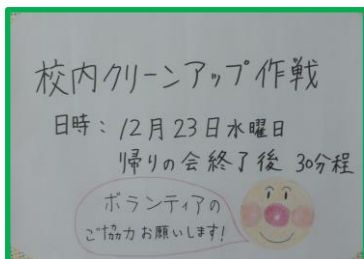 校内クリーンアップ作戦
日時：12月23日水曜日
帰りの会終了後 30分程
ボランティアの
ご協力お願いします!